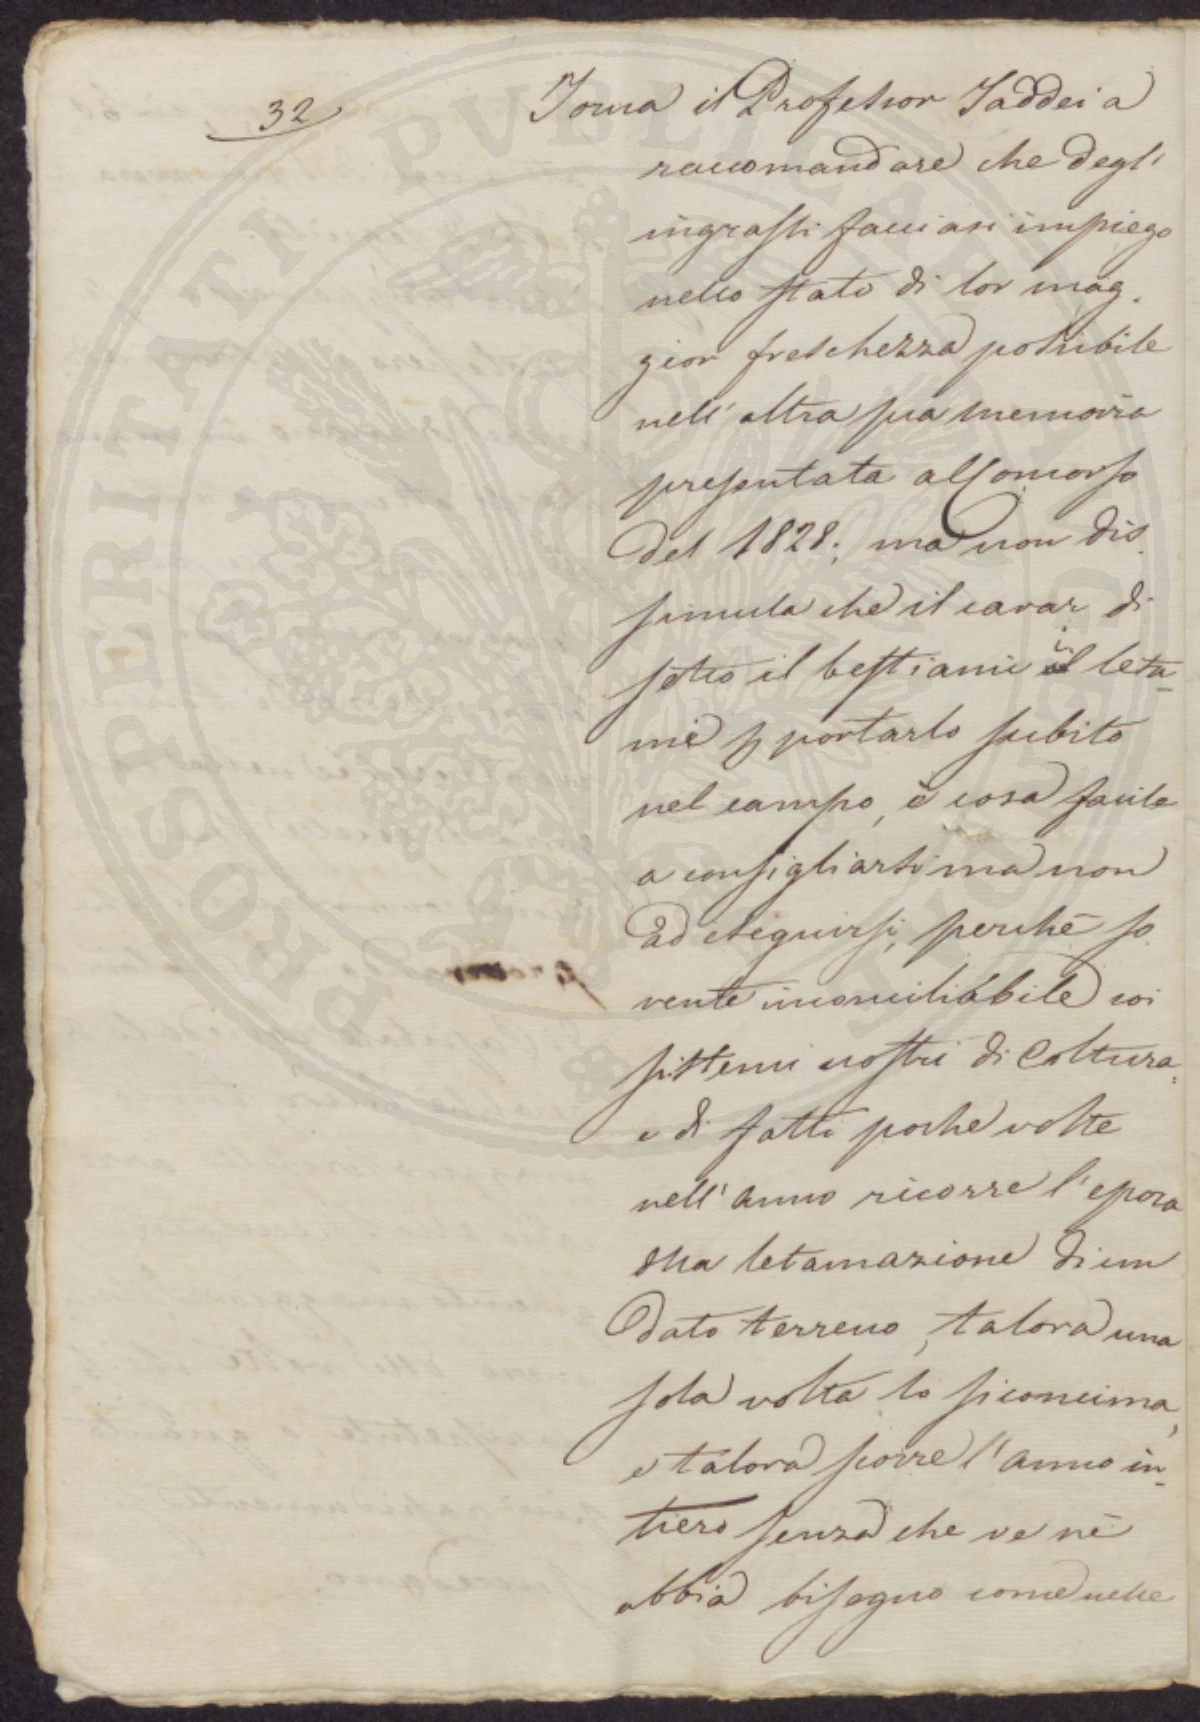 32
Torna il Professor Taddei a
raccomandare che degl'
ingrassi facciasi impiego
nello stato di lor mag.
gior freschezza possibile
nell'altra sua memoria
presentata al Concorso
del 1828; ma non dis.
simula che il cavar di
sotto il bestiame il leta-
me p portarlo subito
nel campo, è cosa facile
a consigliarsi ma non
ad eseguirsi, perchè so
vente inconciliabile coi
sistemi nostri di Coltura.
e di fatti poche volte
nell'anno ricorre l'epoca
della letamazione di un
dato terreno, talora una
sola volta lo si concima,
e talora scorre l'anno in-
tiero senza che ve ne
abbia bisogno come nelle
PROSPERITATI PUBLICAE